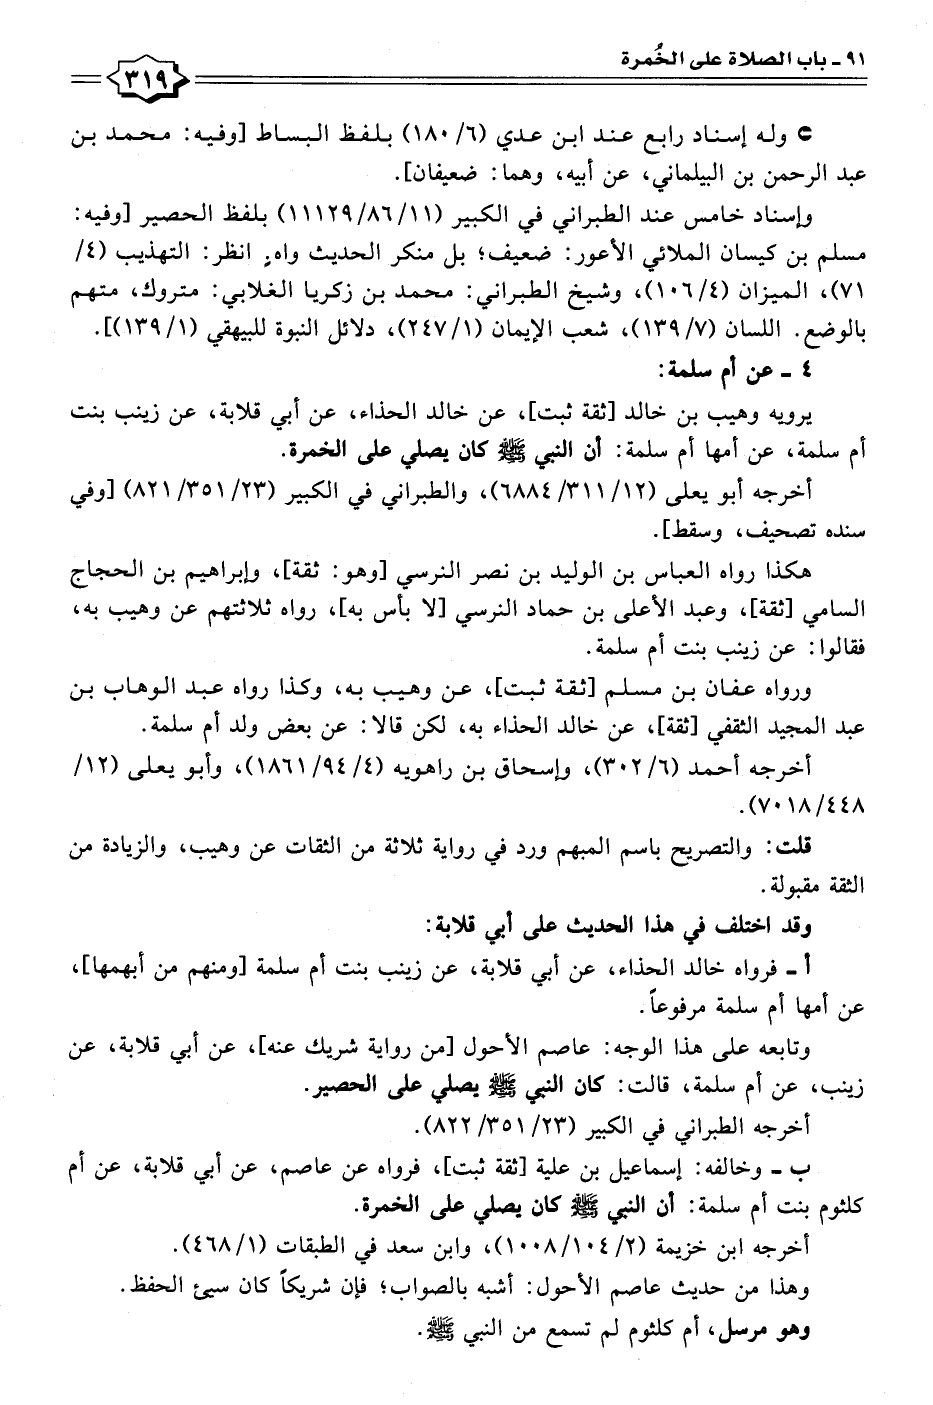 ٩١ - باب الصلاة على الخُمرة
٣١٩
وله إسناد رابع عند ابن عدي (٦/ ١٨٠) بلفظ البساط [وفيه: محمد بن
عبد الرحمن بن البيلماني، عن أبيه، وهما: ضعيفان].
وإسناد خامس عند الطبراني في الكبير (١١/ ٨٦/ ١١١٢٩) بلفظ الحصير [وفيه:
مسلم بن كيسان الملائي الأعور: ضعيف؛ بل منكر الحديث واهٍ. انظر: التهذيب (٤/
٧١)، الميزان (٤/ ١٠٦)، وشيخ الطبراني: محمد بن زكريا الغلابي: متروك، متهم
بالوضع. اللسان (٧/ ١٣٩)، شعب الإيمان (١/ ٢٤٧)، دلائل النبوة للبيهقي (١/ ١٣٩)].
٤ - عن أم سلمة:
يرويه وهيب بن خالد [ثقة ثبت]، عن خالد الحذاء، عن أبي قلابة، عن زينب بنت
أم سلمة، عن أمها أم سلمة: أن النبي ﷺ كان يصلي على الخمرة.
أخرجه أبو يعلى (١٢/ ٣١١/ ٦٨٨٤)، والطبراني في الكبير (٢٣/ ٣٥١/ ٨٢١) [وفي
سنده تصحيف، وسقط].
هكذا رواه العباس بن الوليد بن نصر النرسي [وهو: ثقة]، وإبراهيم بن الحجاج
السامي [ثقة]، وعبد الأعلى بن حماد النرسي [لا بأس به]، رواه ثلاثتهم عن وهيب به،
فقالوا: عن زينب بنت أم سلمة.
ورواه عفان بن مسلم [ثقة ثبت]، عن وهيب به، وكذا رواه عبد الوهاب بن
عبد المجيد الثقفي [ثقة]، عن خالد الحذاء به، لكن قالا: عن بعض ولد أم سلمة.
أخرجه أحمد (٦/ ٣٠٢)، وإسحاق بن راهويه (٤/ ٩٤/ ١٨٦١)، وأبو يعلى (١٢/
٤٤٨/ ٧٠١٨).
قلت: والتصريح باسم المبهم ورد في رواية ثلاثة من الثقات عن وهيب، والزيادة من
الثقة مقبولة.
وقد اختلف في هذا الحديث على أبي قلابة:
أ - فرواه خالد الحذاء، عن أبي قلابة، عن زينب بنت أم سلمة [ومنهم من أبهمها]،
عن أمها أم سلمة مرفوعاً.
وتابعه على هذا الوجه: عاصم الأحول [من رواية شريك عنه]، عن أبي قلابة، عن
زينب، عن أم سلمة، قالت: كان النبي ﷺ يصلي على الحصير.
أخرجه الطبراني في الكبير (٢٣/ ٣٥١/ ٨٢٢).
ب - وخالفه: إسماعيل بن علية [ثقة ثبت]، فرواه عن عاصم، عن أبي قلابة، عن أم
كلثوم بنت أم سلمة: أن النبي ﷺ كان يصلي على الخمرة.
أخرجه ابن خزيمة (٢/ ١٠٤/ ١٠٠٨)، وابن سعد في الطبقات (١/ ٤٦٨).
وهذا من حديث عاصم الأحول: أشبه بالصواب؛ فإن شريكاً كان سيئ الحفظ.
وهو مرسل، أم كلثوم لم تسمع من النبي ﷺ.